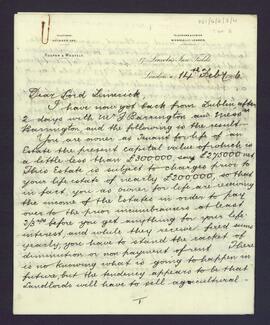 17 Lincoln's Inn Fields
London 14th Feby 6
Dear Lord Limerick,
I have now got back from Dublin after
2 days with Mr J Barrington and Mess
Barrington and the following is the result.
You are owner, as Tenant for life of an
Estate the present capital value of which is
a little less than £300,000 say £275000 net
This Estate is subject to charges prior to
your life estate of nearly £200,000, so that
in fact you as owner for life are receiving
the income of the Estates in order to pay
over to the prior incumbrancers at least
2/3rds before you get anything for your life
interest, and while they receive fixed sums
yearly, you have to stand the racket of
diminution or non payment of rent There
is no knowing what is going to happen in
future, but the tendency appears to be that
Landlords will have to sell agricultural
1